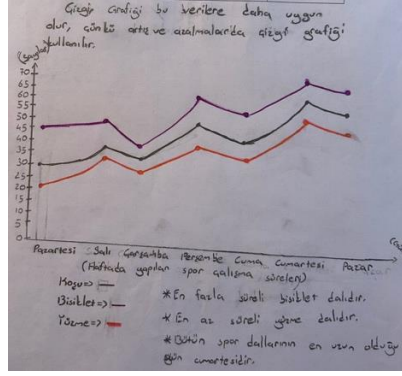 Çizgi Grafiği bu verilere daha uygun
olur, çünkü artış ve azalmalar'da çizgi grafiği
kullanılır.
70
65
60
55
50
45
40
35
30
25
20
15
10
5
0
Pazartesi Salı Çarşamba Perşembe Cuma Cumartesi Pazar
(Haftada yapılan spor çalışma süreleri)
Koşu=>
Bisiklet=>
Yüzme=>
* En fazla süreli bisiklet dalıdır.
* En az süreli yüzme dalıdır.
* Bütün spor dallarının en uzun olduğu
gün cumartesidir.